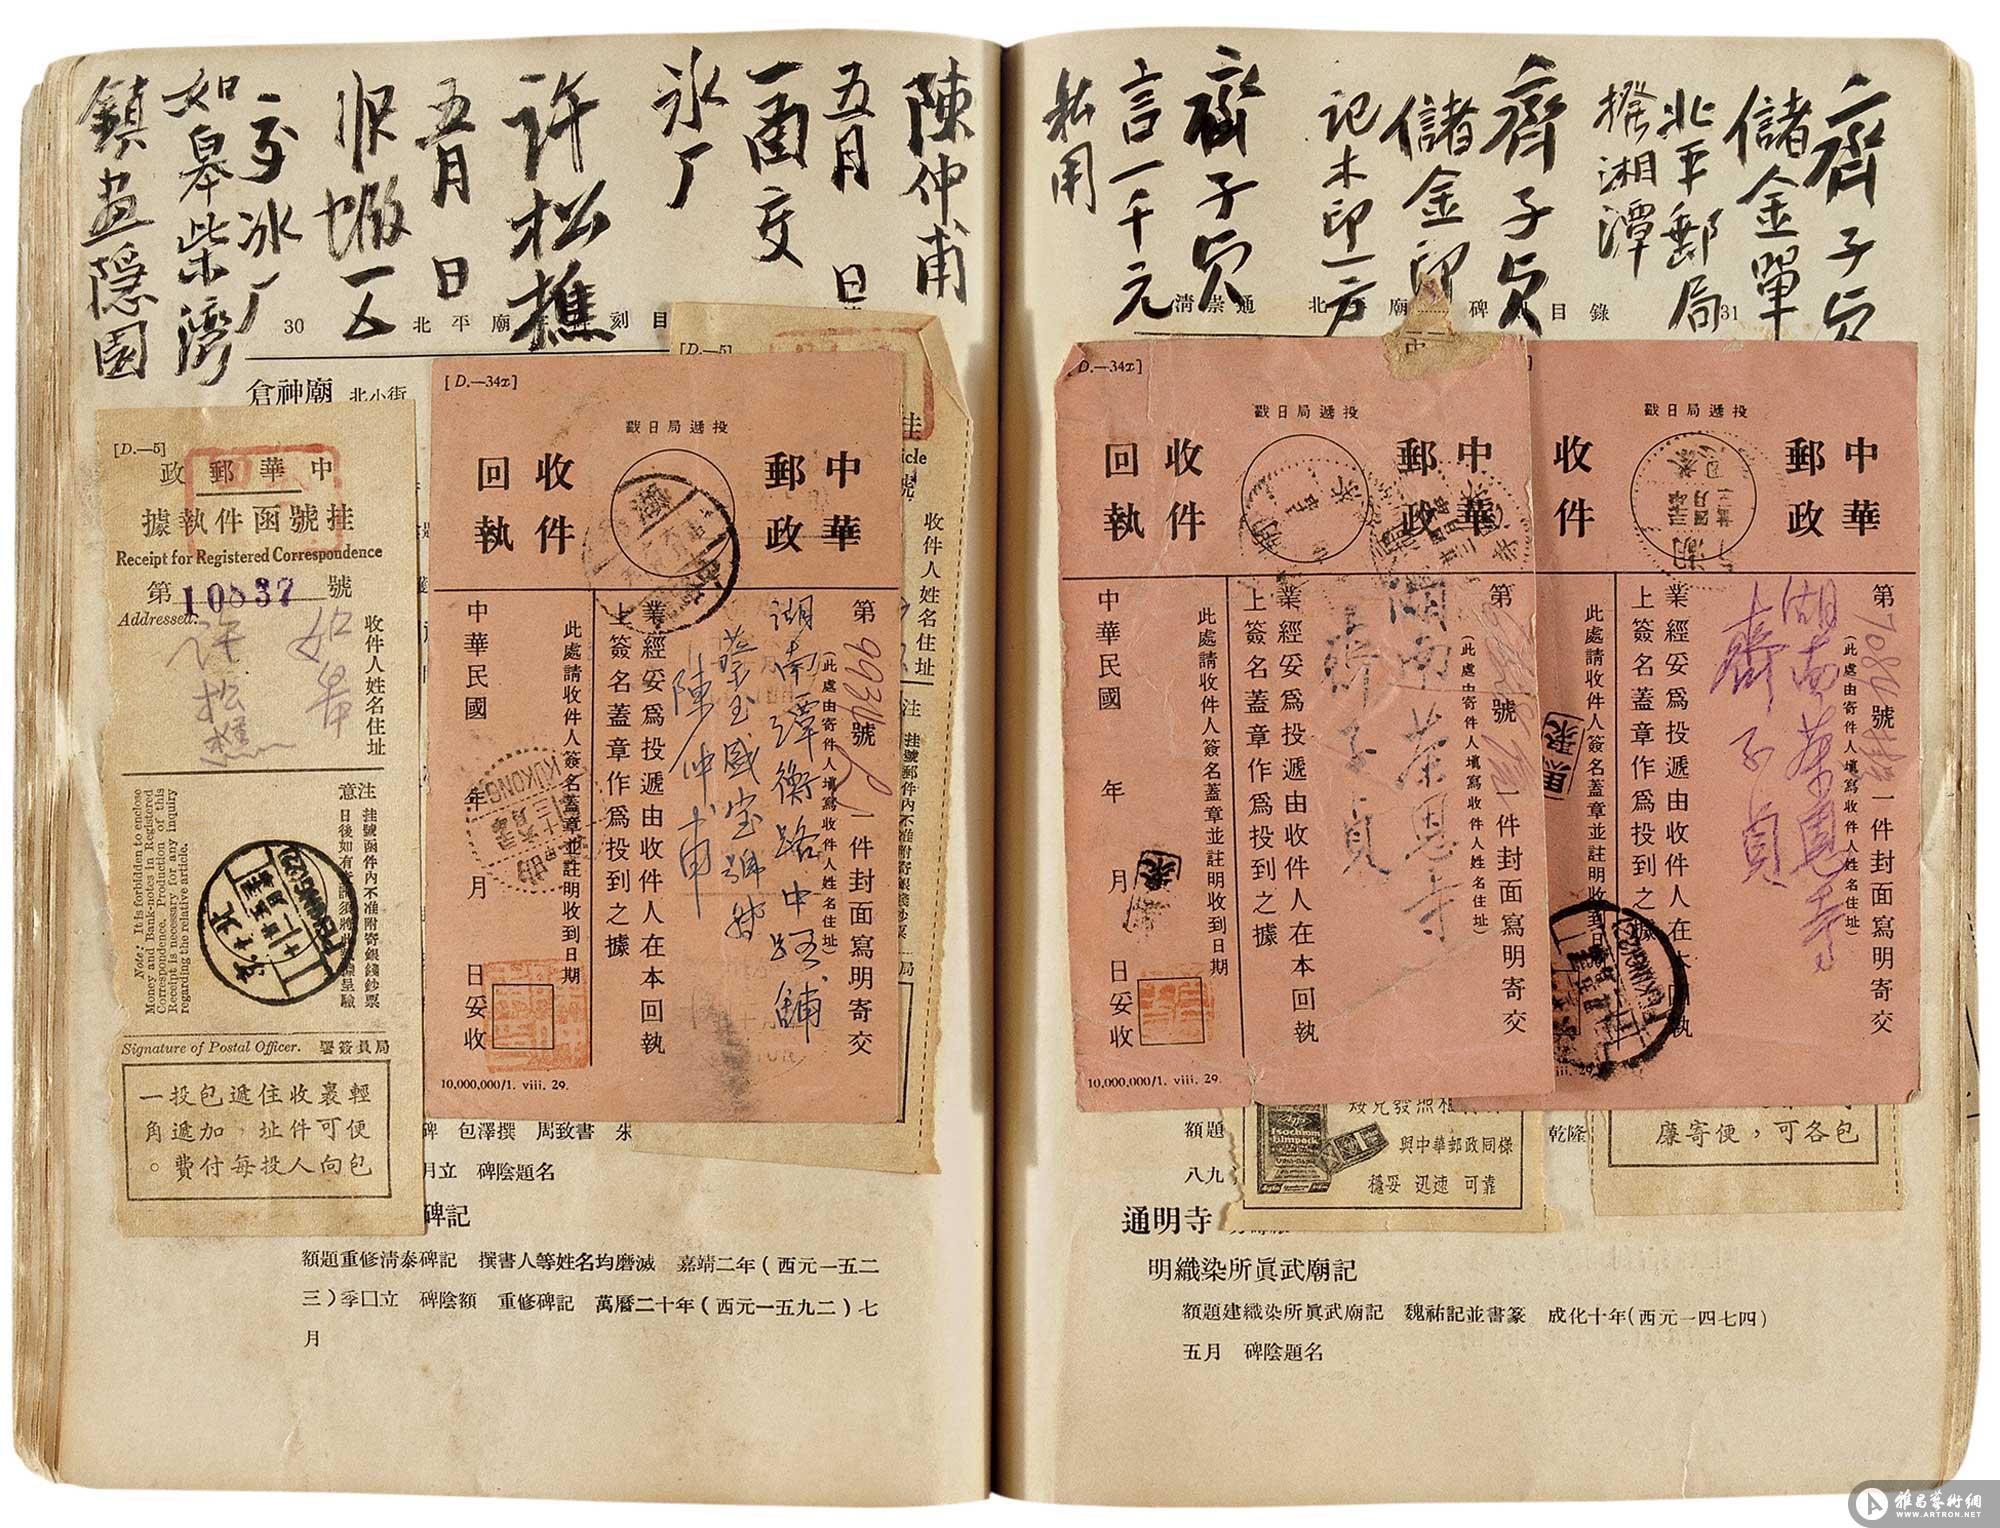 齊子貞
儲金單
北平郵局
撥湘潭
齊子貞
儲金印
記木印一方
齊子貞
言一千元
私用
陳仲甫
五月 日
一函交
冰厂
許松樵
五月 日
交冰厂
如皋柴灣
鎮画隱園
31
30
倉神廟 北小街
[D.—5]
中華郵政
挂號函件執據
Receipt for Registered Correspondence
第10837號
Addressed:
收件人姓名住址
如皋
許松樵
注意
挂號函件內不准附寄銀錢鈔票
Note: It is forbidden to enclose
Money and Bank-notes in Registered
Correspondence. Production of this
Receipt is necessary for any inquiry
regarding the relative article.
Signature of Postal Officer.
局員簽署
輕裹收住遞包投一
便可件址，加遞角
包向人投每付費。
[D.—34x]
投遞局日戳
中華郵政
收件回執
第9934號
一件封面寫明寄交
(此處由寄件人填寫收件人姓名住址)
湖南潭衡路中路鋪
陳仲甫
業經妥爲投遞由收件人在本回執
上簽名蓋章作爲投到之據
此處請收件人簽名蓋章並註明收到日期
中華民國 年 月 日妥收
KUKONG
10,000,000/1. viii. 29.
收件人姓名住址
[D.—5]
[D.—34x]
投遞局日戳
中華郵政
收件回執
第 號
一件封面寫明寄交
(此處由寄件人填寫收件人姓名住址)
湖南茶恩寺
齊子貞
業經妥爲投遞由收件人在本回執
上簽名蓋章作爲投到之據
此處請收件人簽名蓋章並註明收到日期
中華民國 年 月 日妥收
10,000,000/1. viii. 29.
投遞局日戳
中華郵政
收件
第7084號
一件封面寫明寄交
(此處由寄件人填寫收件人姓名住址)
湖南茶恩寺
齊子貞
業經妥爲投遞由收件人在本回執
上簽名蓋章作爲投到之據
此處請收件人簽名蓋章並註明收到日
與中華郵政同樣
穩妥 迅速 可靠
廉寄便，可各包
碑 包澤撰 周致書 朱
月立 碑陰題名
碑記
額題重修清泰碑記 撰書人等姓名均磨滅 嘉靖二年(西元一五二
三)季囗立 碑陰額 重修碑記 萬曆二十年(西元一五九二)七
月
額題
乾隆
八九
通明寺
明織染所眞武廟記
額題建織染所眞武廟記 魏祐記並書篆 成化十年(西元一四七四)
五月 碑陰題名
雅昌藝術網
WWW.ARTRON.NET